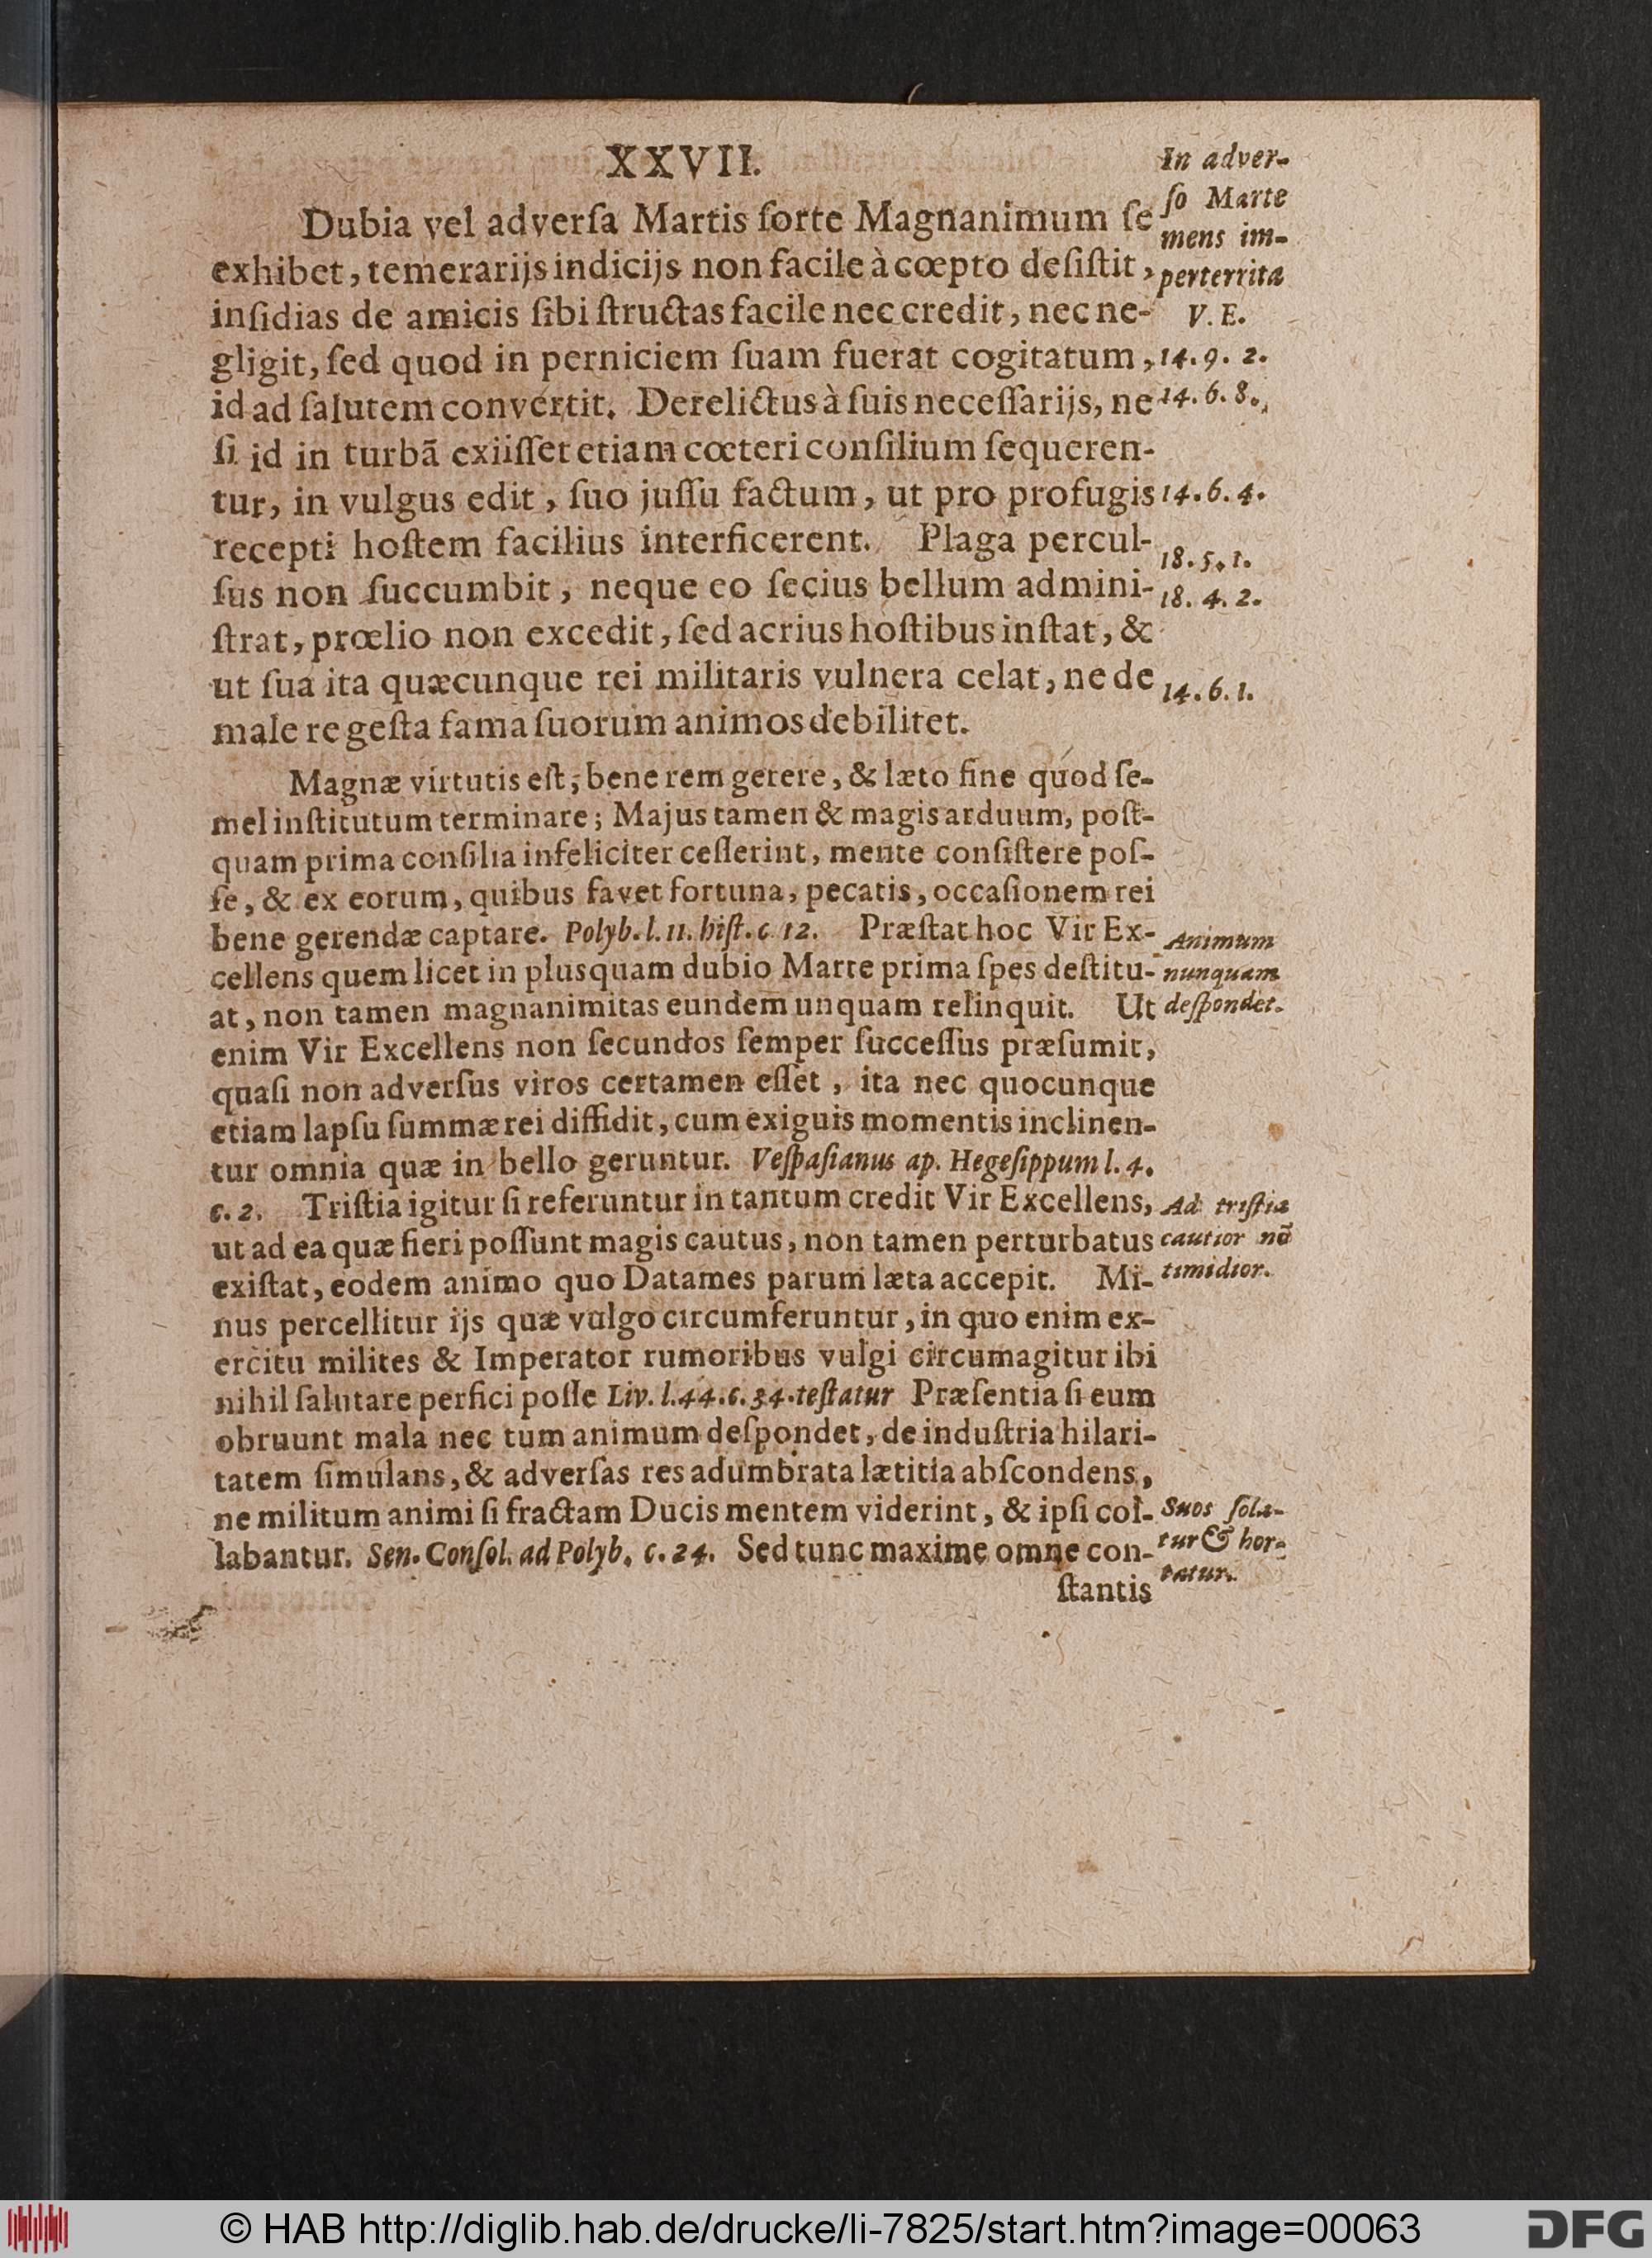 XXVII.
Dubia vel adverſa Martis ſorte Magnanimum ſe
exhibet, temerarijs indicijs non facile à cœpto deſiſtit,
inſidias de amicis ſibi ſtructas facile nec credit, nec ne-
gligit, ſed quod in perniciem ſuam fuerat cogitatum,
id ad ſalutem convertit. Derelictus à ſuis neceſſarijs, ne
ſi id in turbã exiiſſet etiam cœteri conſilium ſequeren-
tur, in vulgus edit, ſuo juſſu factum, ut pro profugis
recepti hoſtem facilius interficerent. Plaga percul-
ſus non ſuccumbit, neque eo ſecius bellum admini-
ſtrat, prœlio non excedit, ſed acrius hoſtibus inſtat, &
ut ſua ita quæcunque rei militaris vulnera celat, ne de
male re geſta fama ſuorum animos debilitet.
In adver-
ſo Marte
mens im-
perterrita
V. E.
14. 9. 2.
14. 6. 8.
14. 6. 4.
18. 5. 1.
18. 4. 2.
14. 6. 1.
Magnæ virtutis eſt, bene rem gerere, & læto fine quod ſe-
mel inſtitutum terminare; Majus tamen & magis arduum, poſt-
quam prima conſilia infeliciter ceſſerint, mente conſiſtere poſ-
ſe, & ex eorum, quibus favet fortuna, pecatis, occaſionem rei
bene gerendæ captare. Polyb. l. 11. hiſt. c. 12. Præſtat hoc Vir Ex-
cellens quem licet in plusquam dubio Marte prima ſpes deſtitu-
at, non tamen magnanimitas eundem unquam relinquit. Ut
enim Vir Excellens non ſecundos ſemper ſucceſſus præſumit,
quaſi non adverſus viros certamen eſſet, ita nec quocunque
etiam lapſu ſummæ rei diffidit, cum exiguis momentis inclinen-
tur omnia quæ in bello geruntur. Veſpaſianus ap. Hegeſippum l. 4.
c. 2. Triſtia igitur ſi referuntur in tantum credit Vir Excellens,
ut ad ea quæ fieri poſſunt magis cautus, non tamen perturbatus
exiſtat, eodem animo quo Datames parum læta accepit. Mi-
nus percellitur ijs quæ vulgo circumferuntur, in quo enim ex-
ercitu milites & Imperator rumoribus vulgi circumagitur ibi
nihil ſalutare perfici poſſe Liv. l. 44. c. 34. teſtatur Præſentia ſi eum
obruunt mala nec tum animum deſpondet, de induſtria hilari-
tatem ſimulans, & adverſas res adumbrata lætitia abſcondens,
ne militum animi ſi fractam Ducis mentem viderint, & ipſi col-
labantur. Sen. Conſol. ad Polyb. c. 24. Sed tunc maxime omne con-
ſtantis
Animum
nunquam
deſpondet.
Ad triſtia
cautior nõ
timidior.
Suos ſola-
tur & hor-
tatur.
© HAB http://diglib.hab.de/drucke/li-7825/start.htm?image=00063
DFG